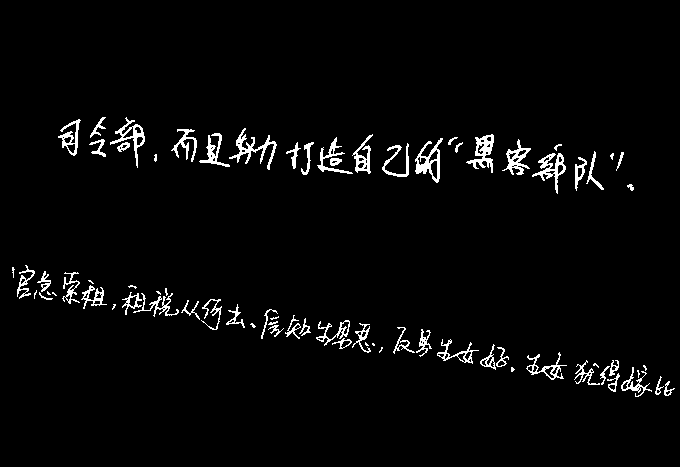 司令部，而且努力打造自己的“黑客部队”。
官急索租，租税从何出、信知生男恶，反男生女好。生女犹得嫁比